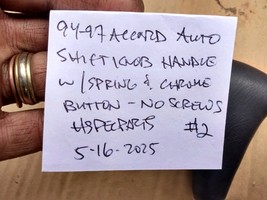 94-97 ACCORD AUTO
SHIFT KNOB HANDLE
W/SPRING & CHROME
BUTTON - NO SCREWS
H3PECPARTS #2
5-16-2025